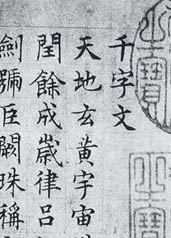 千字文
天地玄黃宇宙
閏餘成歲律呂
劍號巨闕珠稱